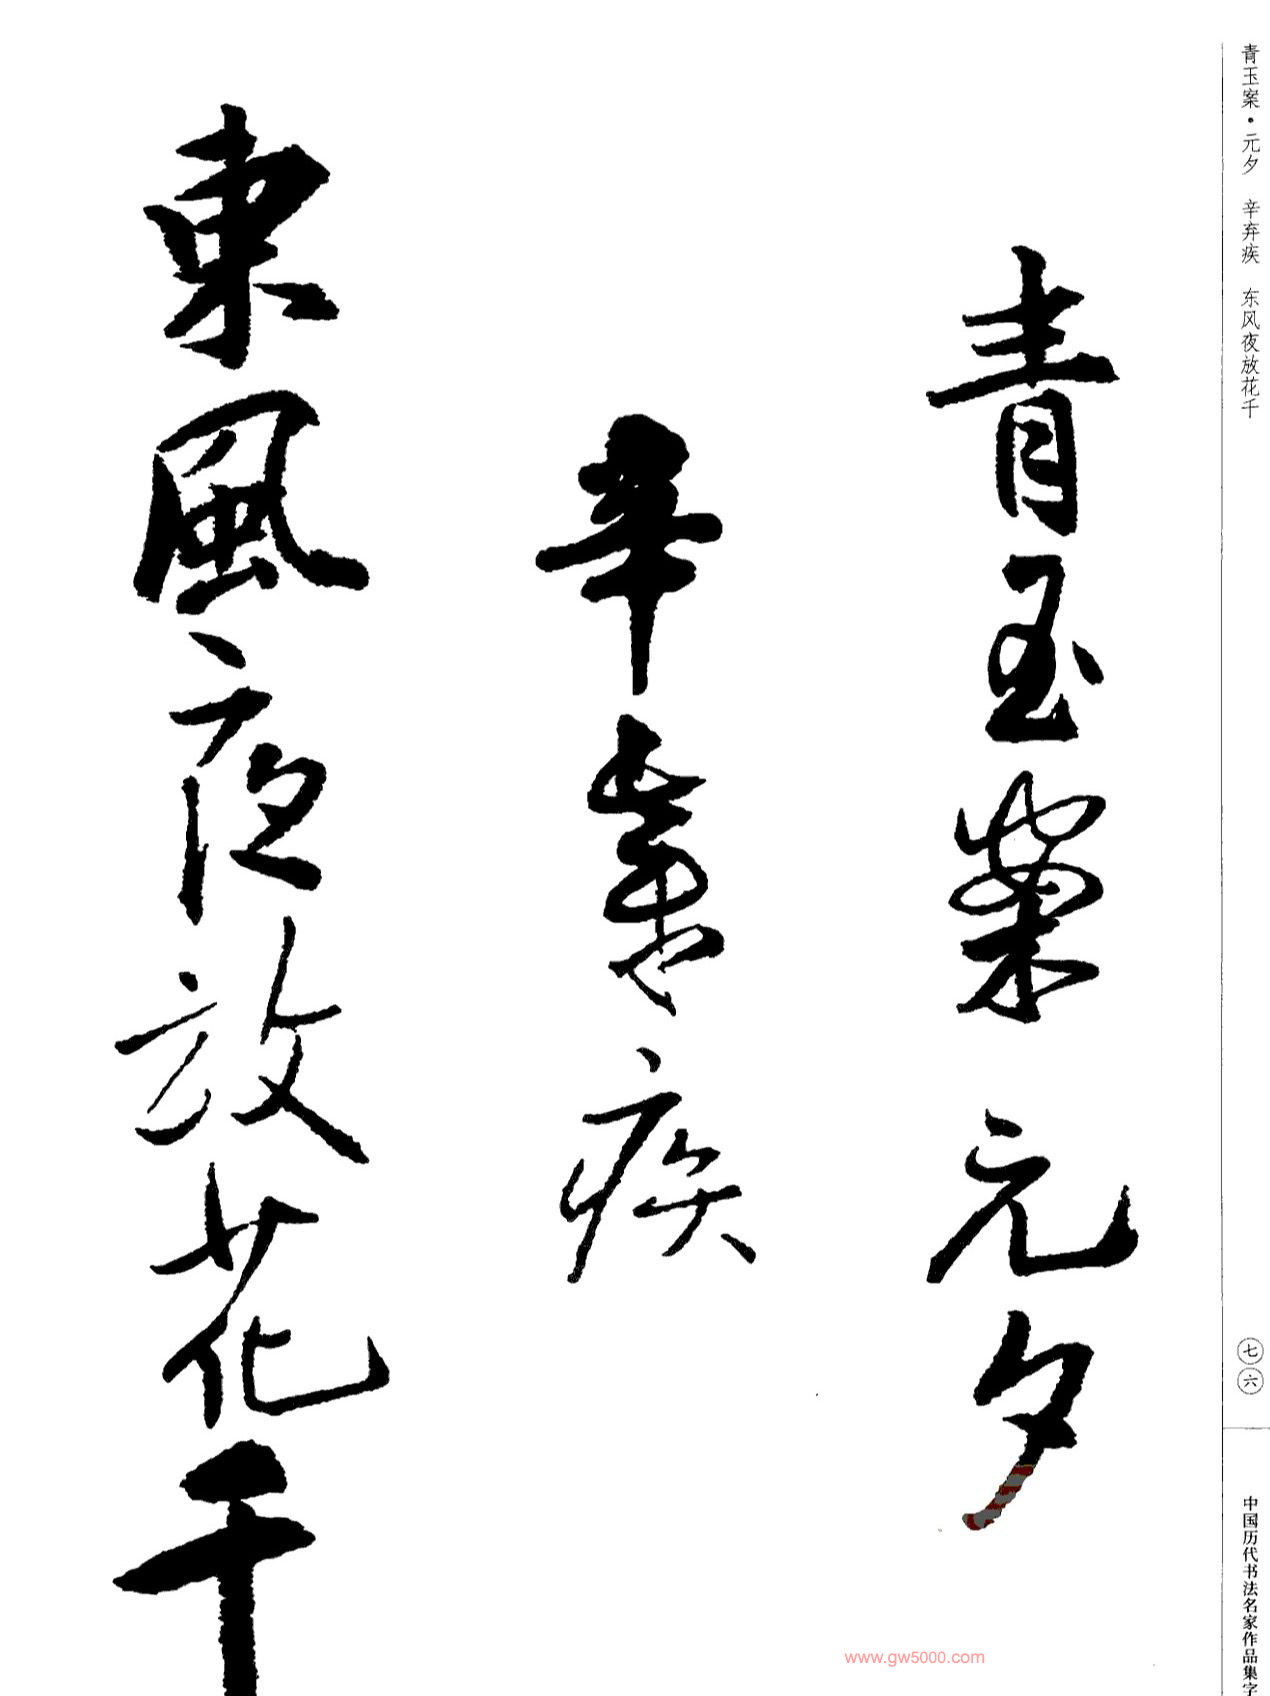 青玉案·元夕 辛弃疾 东风夜放花千
七六
中国历代书法名家作品集字
青玉案元夕
辛棄疾
東風夜放花千
www.gw5000.com